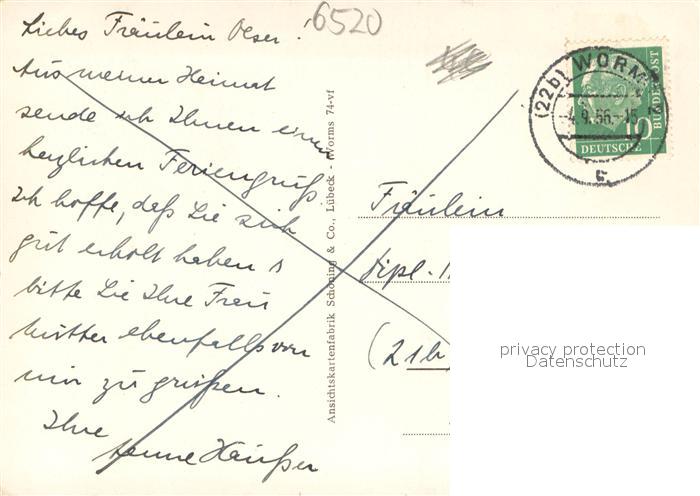 6520
Liebes Fräulein Oeser!
Aus meiner Heimat
sende ich Ihnen einen
herzlichen Feriengruß.
Ich hoffe, daß Sie sich
gut erholt haben &
bitte Sie Ihre Frau
Mutter ebenfalls von
mir zu grüßen.
Ihre
Hanne Häußer
Ansichtskartenfabrik Schöning & Co., Lübeck - Worms 74-vf
(22b) WORMS
-4.9.56.-15
c
10
DEUTSCHE
BUNDESPOST
Fräulein
Dipl.-
(21b)
privacy protection
Datenschutz